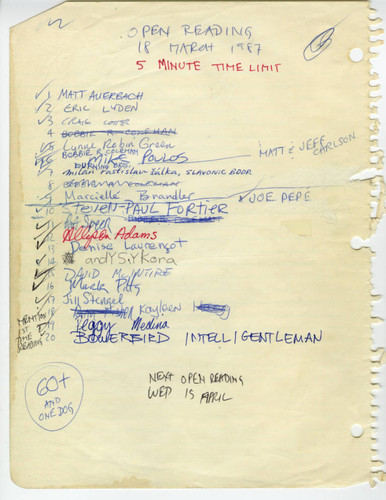 OPEN READING
18 MARCH 1987
5 MINUTE TIME LIMIT
1 MATT AUERBACH
2 ERIC LYDEN
3 CRAIG
4 BOBBIE R. COLEMAN
5 Lynne Robin Green
BOBBIE R. COLEMAN
6 Mike Poulos
MATT & JEFF CARLSON
7 milan rastislav šalka, SLAVONIC BOOR
8
9 Marcielle Brandler
JOE PEPE
10 Steven PAUL FORTIER
11
12 Allyson Adams
13 Denise
14 andY SiYKora
15 DAVID McINTIRE
16 Mark
17 Jill Stengel
18 Kayleen
19 Peggy Medina
20 BOWERBIRD INTELLIGENTLEMAN
MENTION
1ST
TIME
READING
60+
AND
ONE DOG
NEXT OPEN READING
WED 15 APRIL